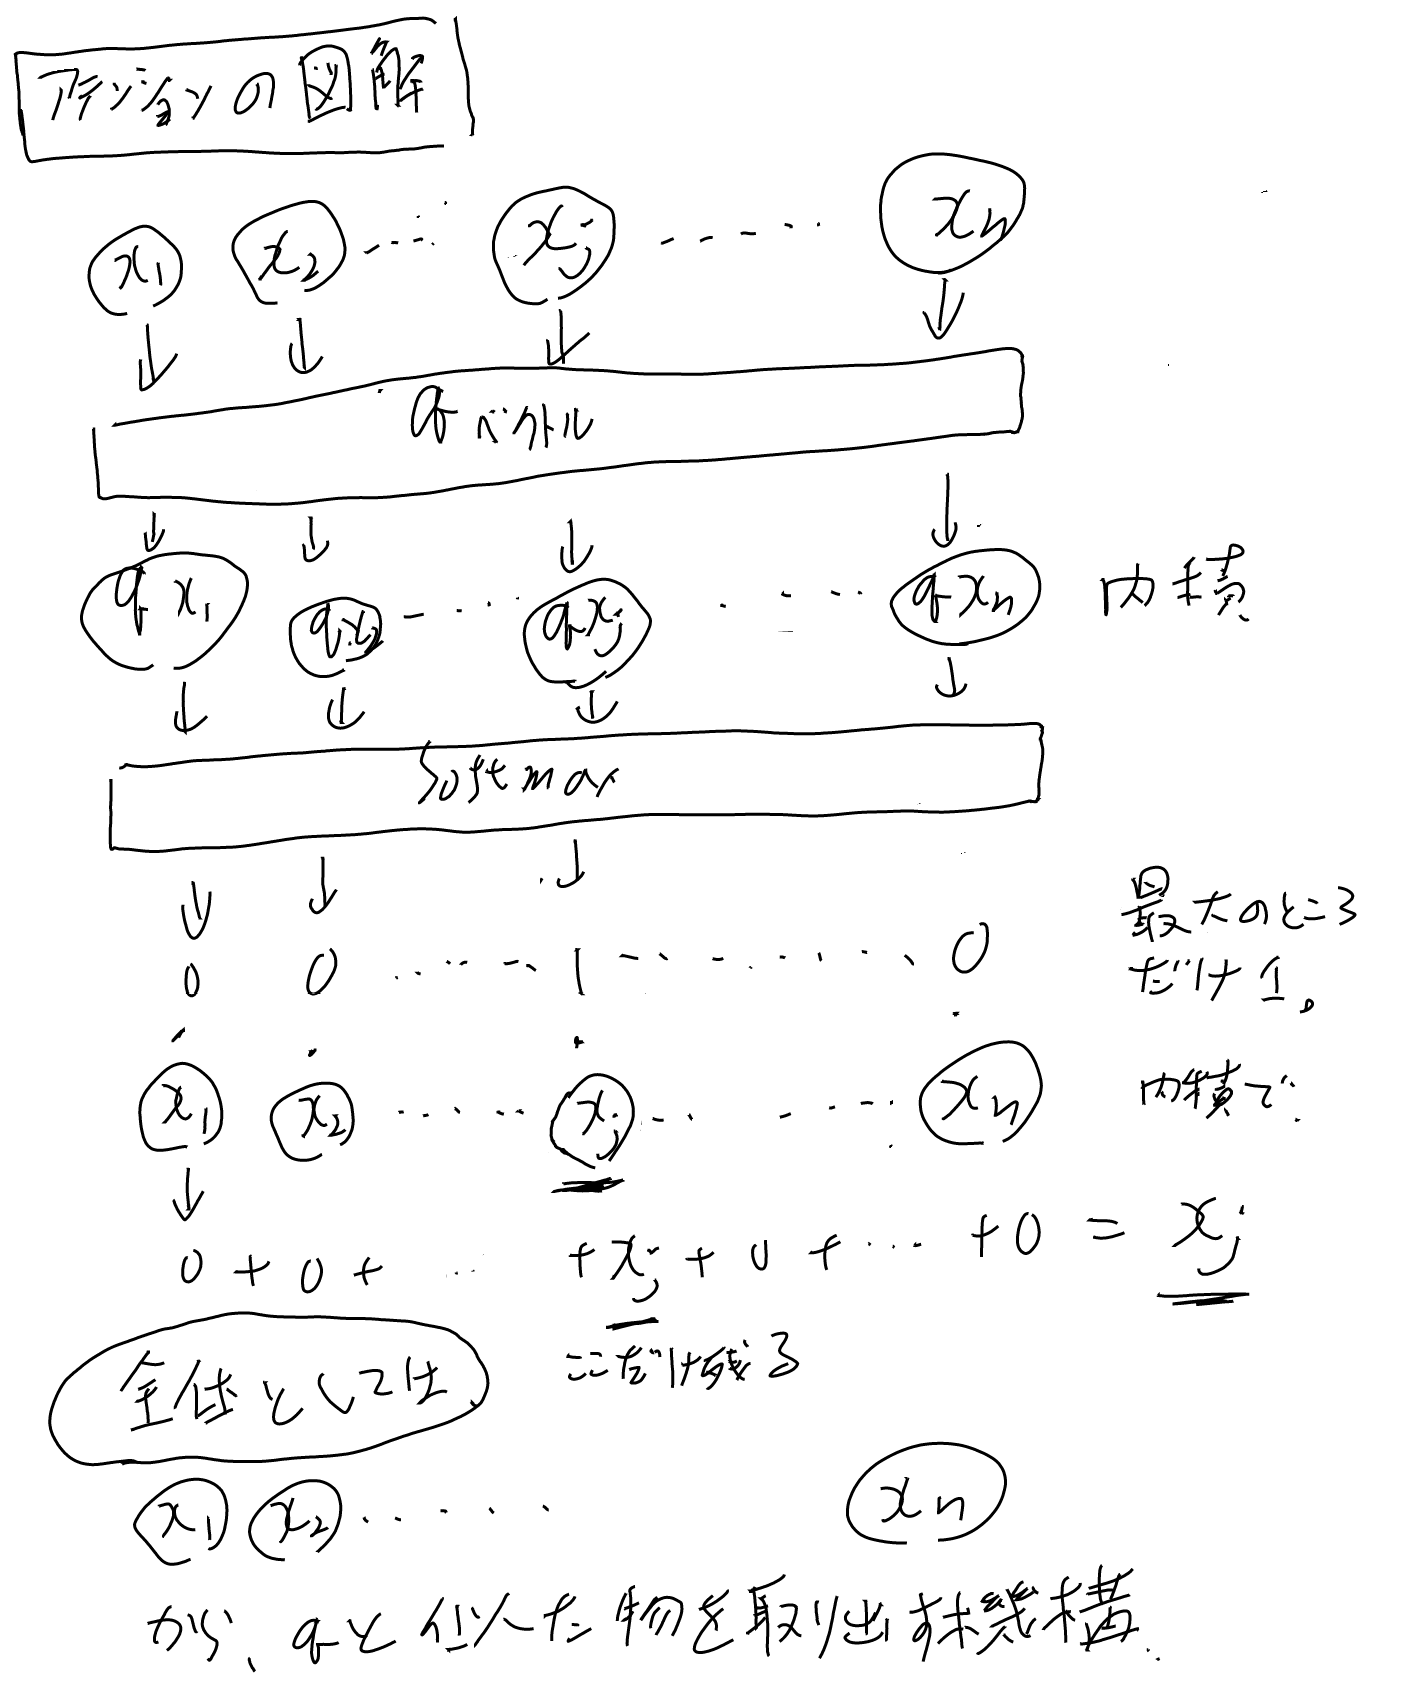 アテンションの図解
x1 x2 ..... xj ...... xn
qベクトル
qx1 qx2 ..... qxj ..... qxn 内積
Softmax
最大のところ
0 0 ..... 1 ......... 0
だけ1。
x1 x2 ..... xj ..... xn 内積で
0 + 0 + ... + xj + 0 + ... + 0 = xj
ここだけ残る
全体としては
x1 x2 ..... xn
から、qと似た物を取り出す機構.